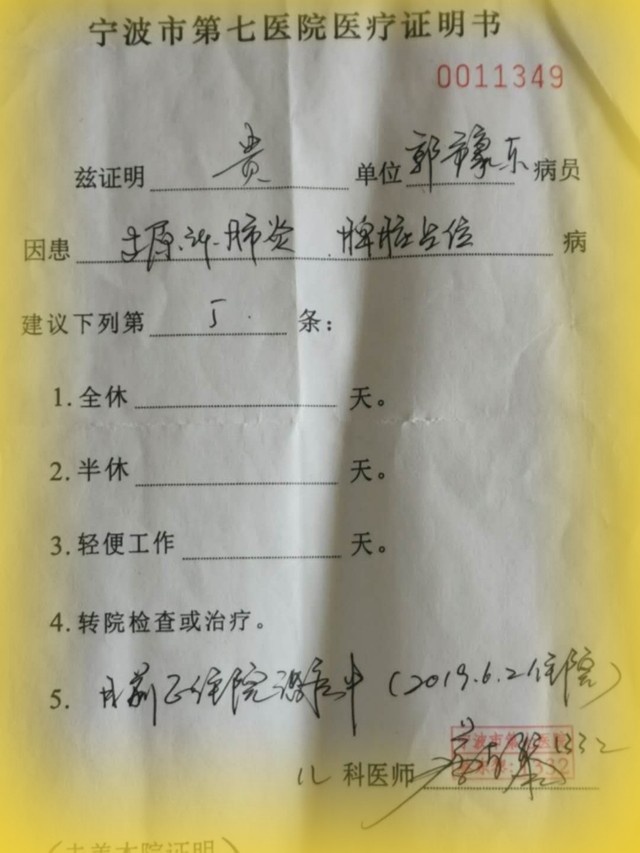 宁波市第七医院医疗证明书
0011349
兹证明 贵 单位 郭 豪东 病员
因患 支原体肺炎 脾脏占位 病
建议下列第 5. 条：
1.全休 天。
2.半休 天。
3.轻便工作 天。
4.转院检查或治疗。
5. 目前正住院治疗中（2019.6.2住院）
儿 科医师 1332
宁波市第 医院
332